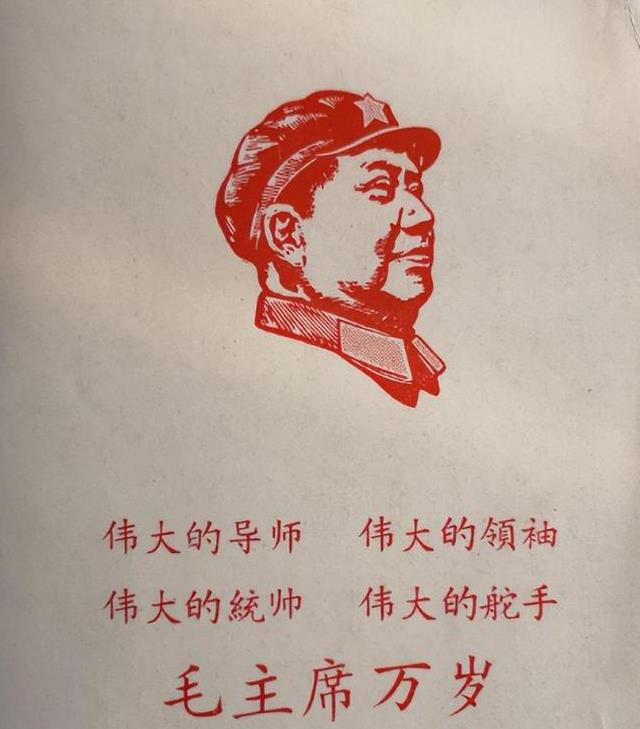 伟大的导师 伟大的領袖
伟大的統帅 伟大的舵手
毛主席万岁